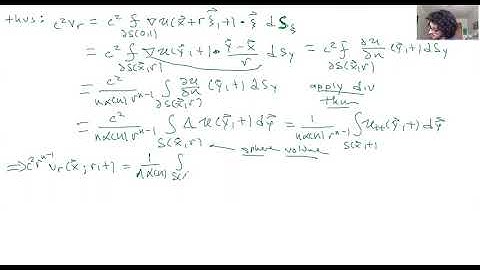 thus: c²v_r = c² ⨍_{∂S(0,1)} ∇u(x⃗+rξ⃗,t)·ξ⃗ dS_ξ
= c² ⨍_{∂S(x⃗,r)} ∇u(y⃗,t)·(y⃗-x⃗)/r dS_y = c² ⨍_{∂S(x⃗,r)} ∂u/∂n (y⃗,t) dS_y
= c²/(nα(n)r^{n-1}) ∫_{∂S(x⃗,r)} ∂u/∂n (y⃗,t) dS_y apply div
thm
= c²/(nα(n)r^{n-1}) ∫_{S(x⃗,r)} Δu(y⃗,t)dy⃗ = 1/(nα(n)r^{n-1}) ∫_{S(x⃗,t)} u_{tt}(y⃗,t)dy⃗
sphere volume
⇒ c²r^{n-1}v_r(x⃗;r,t) = 1/(nα(n)) ∫_{S(x